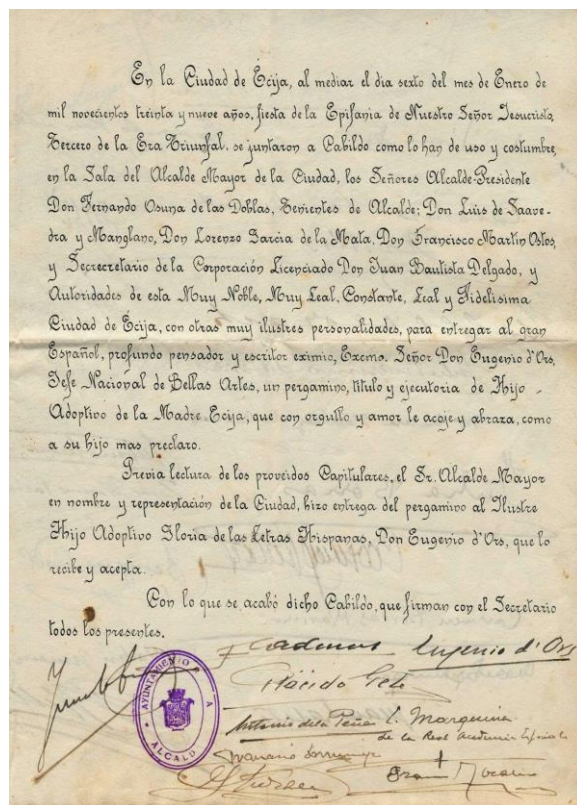 En la Ciudad de Écija, al mediar el dia sexto del mes de Enero de
mil novecientos treinta y nueve años, fiesta de la Epifania de Nuestro Señor Jesucristo,
Tercero de la Era Triunfal. se juntaron a Cabildo como lo han de uso y costumbre,
en la Sala del Alcalde Mayor de la Ciudad, los Señores Alcalde-Presidente
Don Fernando Osuna de las Doblas, Tenientes de Alcalde; Don Luis de Saave-
dra y Manglano, Don Lorenzo Garcia de la Mata, Don Francisco Martin Ostos,
y Secrecretario de la Corporación Licenciado Don Juan Bautista Delgado, y
Autoridades de esta Muy Noble, Muy Leal, Constante, Leal y Fidelisima
Ciudad de Écija, con otras muy ilustres personalidades, para entregar al gran
Español, profundo pensador y escritor eximio, Excmo. Señor Don Eugenio d'Ors,
Jefe Nacional de Bellas Artes, un pergamino, titulo y ejecutoria de Hijo
Adoptivo de la Madre Ecija, que con orgullo y amor le acoje y abraza, como
a su hijo mas preclaro.
Previa lectura de los proveidos Capitulares, el Sr. Alcalde Mayor
en nombre y representación de la Ciudad, hizo entrega del pergamino al Ilustre
Hijo Adoptivo Gloria de las Letras Hispanas, Don Eugenio d'Ors, que lo
recibe y acepta.
Con lo que se acabó dicho Cabildo, que firman con el Secretario
todos los presentes.
Cadenas Eugenio d'Ors
AYUNTAMIENTO
ALCALD
Antonio de la Peña E. Marquina
de la Real Academia Española
Mariano